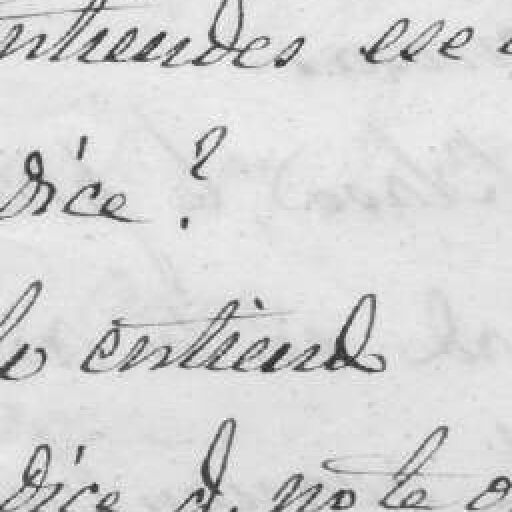 ntiendes ese
dice?
lo entiend
dice d. no te